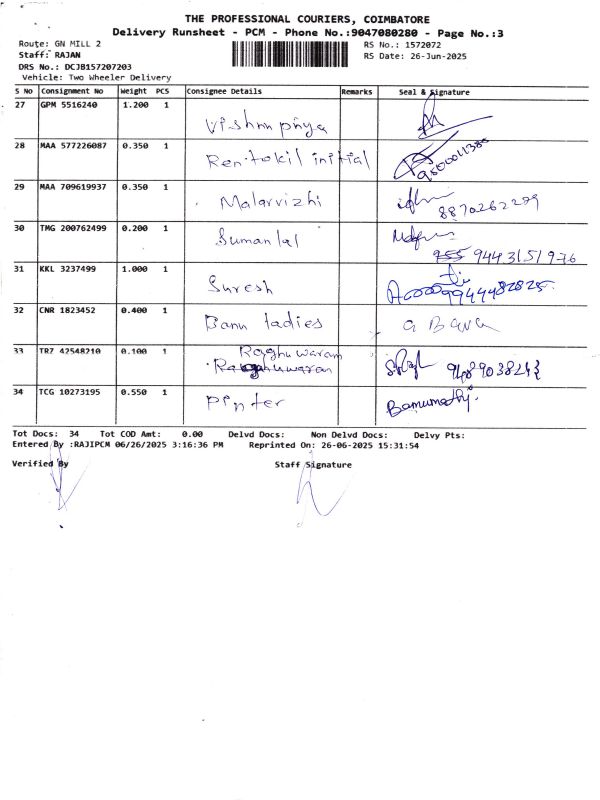 THE PROFESSIONAL COURIERS, COIMBATORE
Delivery Runsheet - PCM - Phone No.:9047080280 - Page No.:3
Route: GN MILL 2 RS No.: 1572072
Staff: RAJAN RS Date: 26-Jun-2025
DRS No.: DCJB157207203
Vehicle: Two Wheeler Delivery
S No Consignment No Weight PCS Consignee Details Remarks Seal & Signature
27 GPM 5516240 1.200 1 Vishnu priya
28 MAA 577226087 0.350 1 Rentokil initial
29 MAA 709619937 0.350 1 Malarvizhi 8870262279
30 TMG 200762499 0.200 1 Sumanlal 9443151976
31 KKL 3237499 1.000 1 Suresh 9944482825
32 CNR 1823452 0.400 1 Banu tadies
33 TRZ 42548210 0.100 1 Raghuwaram
34 TCG 10273195 0.550 1 Pinter Banumathy.
Tot Docs: 34 Tot COD Amt: 0.00 Delvd Docs: Non Delvd Docs: Delvy Pts:
Entered By :RAJIPCM 06/26/2025 3:16:36 PM Reprinted On: 26-06-2025 15:31:54
Verified By Staff Signature